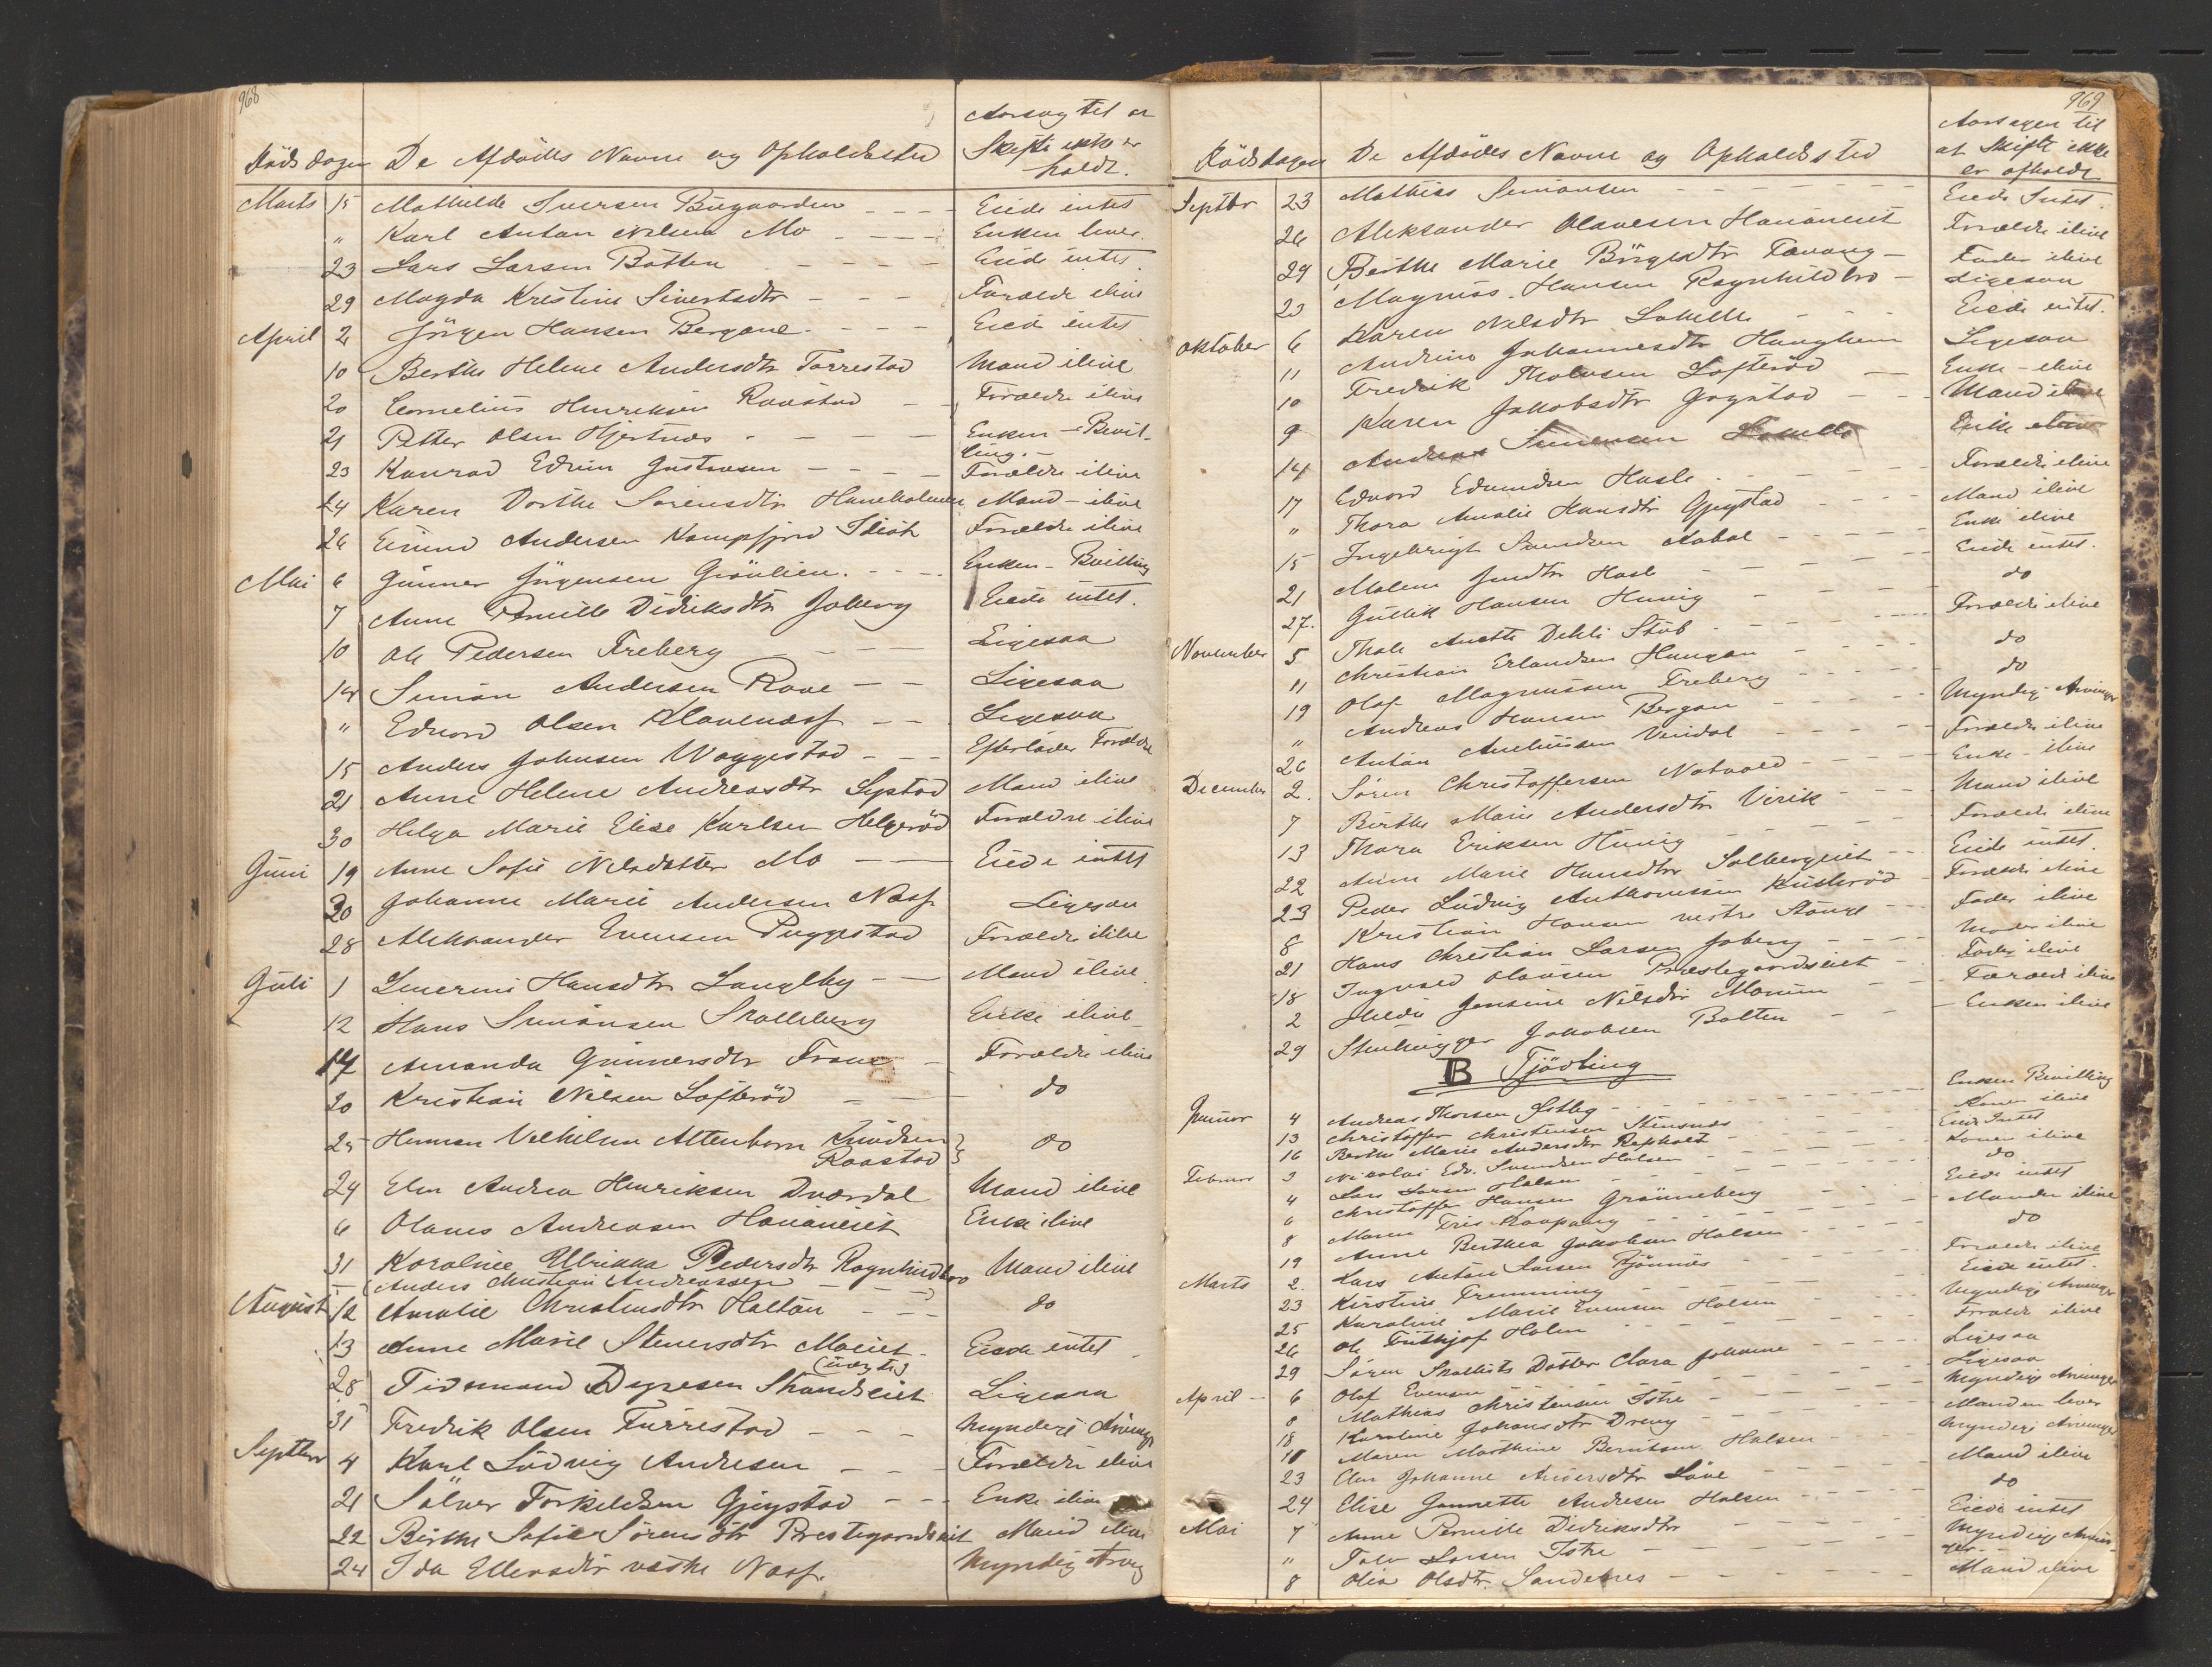 968
Dödsdagen De Afdödes Navne og Opholdssted Aarsag til at Skifte ikke er holdt.
Marts 15 Mathilde Iversen Bugaarden Eiede intet
" Karl Anton Nilsen Mo Enken lever.
23 Lars Larsen Botten Eiede intet
29 Magda Kristine Sivertsdtr Forældre ilive
April 2 Jörgen Hansen Bergane Eiede intet
10 Berthe Helene Andersdtr Torrestad Mand ilive
20 Cornelius Henriksen Raastad Forældre ilive
21 Petter Olsen Hjertnæs Enken - Bevilling.
23 Konrad Edvin Gustavsen Forældre ilive
24 Karen Dorthe Sörensdtr Haneholmen Mand - ilive
26 Eivind Andersen Kampfjord Idiot Forældre ilive
Mai 6 Gunner Jörgensen Grönlien. Enken - Bevilling
7 Anne Pernille Didriksdtr Joberg Eiede intet.
10 Ole Pedersen Freberg Ligesaa
14 Simon Andersen Rave Ligesaa
" Edvard Olsen Klavenæss Ligesaa
15 Anders Johnsen Waggestad Efterlader Forældre
21 Anne Helene Andreasdtr Lystad Mand ilive
30 Helga Marie Elise Karlsen Helgeröd Forældre ilive
Juni 19 Anne Sofie Nilsdatter Mo Eiede intet
20 Johanne Marie Andersen Næss Ligesaa
28 Aleksander Evensen Puggestad Forældre ilive
Juli 1 Severine Hansdtr Langeby Mand ilive
12 Hans Simonsen Skalleberg Enke ilive
14 Amanda Gunnersdtr Fraae Forældre ilive
20 Kristian Nilsen Löfteröd do
25 Herman Velhelm Attenborn Knudsen
Raastad do
24 Elen Andrea Henriksen Dverdal Mand ilive
6 Olaves Andreasen Hauaneiet Enke ilive
31 Karoline Ulrikka Pedersdtr Ragnhildsro Mand ilive
(Anders Christian Andreassen)
August 12 Amalie Christensdtr Haltan do
13 Anne Marie Stenersdtr Moeiet Eiede intet
(uægte)
28 Tidemand Dyresen Strandeiet Ligesaa
31 Fredrik Olsen Furrestad Myndige Arvinger
Septbr 4 Karl Ludvig Andresen Forældre ilive
21 Sölver Torkildsen Gjegstad Enke ilive
22 Berthe Sofie Sörensdtr Prestegaardseiet Mand ilive
24 Ida Ellevsdtr vestre Næss. Myndig Arving
969
Dödsdagen De Afdödes Navne og Opholdssted Aarsagen til at Skifte ikke er afholdt
Septbr 23 Mathias Simonsen Eiede Intet.
26 Aleksander Olavesen Hauaneiet Forældre ilive
29 Berthe Marie Börgesdtr Tavang Fader ilive
23 Magnus Hansen Ragnhildsro Ligesaa
Oktober 6 Karen Nilsdtr Sakelle Eiede intet.
11 Andrine Johannesdtr Haughem Ligesaa
10 Fredrik Tholvsen Löfteröd Enke - ilive
9 Karen Jakobsdtr Gogstad Mand ilive
14 Andreas Simensen Enke ilive
17 Edvard Edvindsen Hasle Forældre ilive
" Thora Amalie Hansdtr Gjegstad Mand ilive
15 Ingebrigt Svendsen Enke ilive
21 Malene Hasle Eiede intet.
27. Gullik Hansen Hunig do
November 5 Thale Anette Dehli Stub Forældre ilive
11 Christian Erlandsen Haugan do
19 Olaf Magnussen Freberg do
" Andreas Hansen Bergan Myndige Arvinger
26 Anton Anthonsen Vindal Forældre ilive
December 2. Sören Christoffersen Natvold Enke - ilive
7 Berthe Marie Andersdtr Virik Mand ilive
13 Thora Eriksen Hunig Forældre ilive
22 Anne Marie Hansdtr Solbergeiet Eiede intet.
23 Peder Ludvig Anthonissen Kulleröd Forældre ilive
8 Kristian Hansen vestre Stange Fader ilive
21 Hans Christian Larsen Joberg Moder ilive
18 Ingvald Olausen Præstegaardseiet Fader ilive
2 Hilda Jensine Nilsdtr Moeiim Forældre ilive
29 Stenhugger Jakobsen Botten Enken ilive
B Tjödling
Januar 4 Andreas Thorsen Östby Enken Bevilling
13 Christoffer Christensen Stensnæs Konen ilive
16 Berthe Marie Andersdtr Rekholt Eiede Intet
Februar 3 Nikolai Edv. Svendsen Halsen Konen ilive
4 Lars Larsen Halsen do
6 Christoffer Hansen Grönneberg Eiede intet
8 Maren Friis Kaupang Manden ilive
19 Anne Berthea Jakobsen Halsen do
Marts 2. Lars Anton Larsen Bjönnes Forældre ilive
23 Kirstine Fremming Eiede intet.
25 Karoline Marie Evensen Halsen Myndige Arvinger
26 Ole Frithjof Holm Forældre ilive
29 Sören Skallists Datter Clara Johanne Ligesaa
April 6 Olaf Evensen Ligesaa
8 Mathias Christensen Istre Myndige Arvinger
18 Karoline Johansdtr Dreng Manden lever
10 Maren Marthine Berntsen Halsen Myndige Arvinger
23 Elen Johanne Andersdtr Löve Mand ilive
24 Elise Jannette Andresen Halsen do
Mai 7 Anne Pernille Didriksdtr Eiede intet
" Tolv Larsen Istre Myndige Arvinger
8 Olia Olsdtr Sandenes Mand ilive